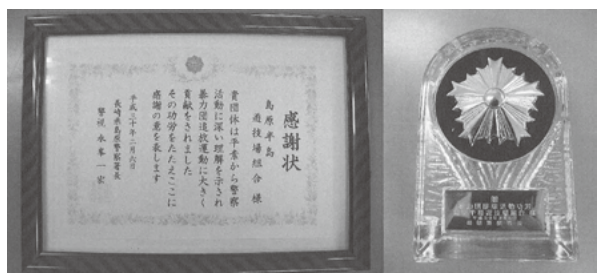 感謝状
島原半島
遊技場組合 様
貴団体は平素から警察
活動に深い理解を示され
暴力団追放運動に大きく
貢献をされました
その功労をたたえここに
感謝の意を表します
平成三十年二月六日
長崎県島原警察署長
警視 永峯一宏